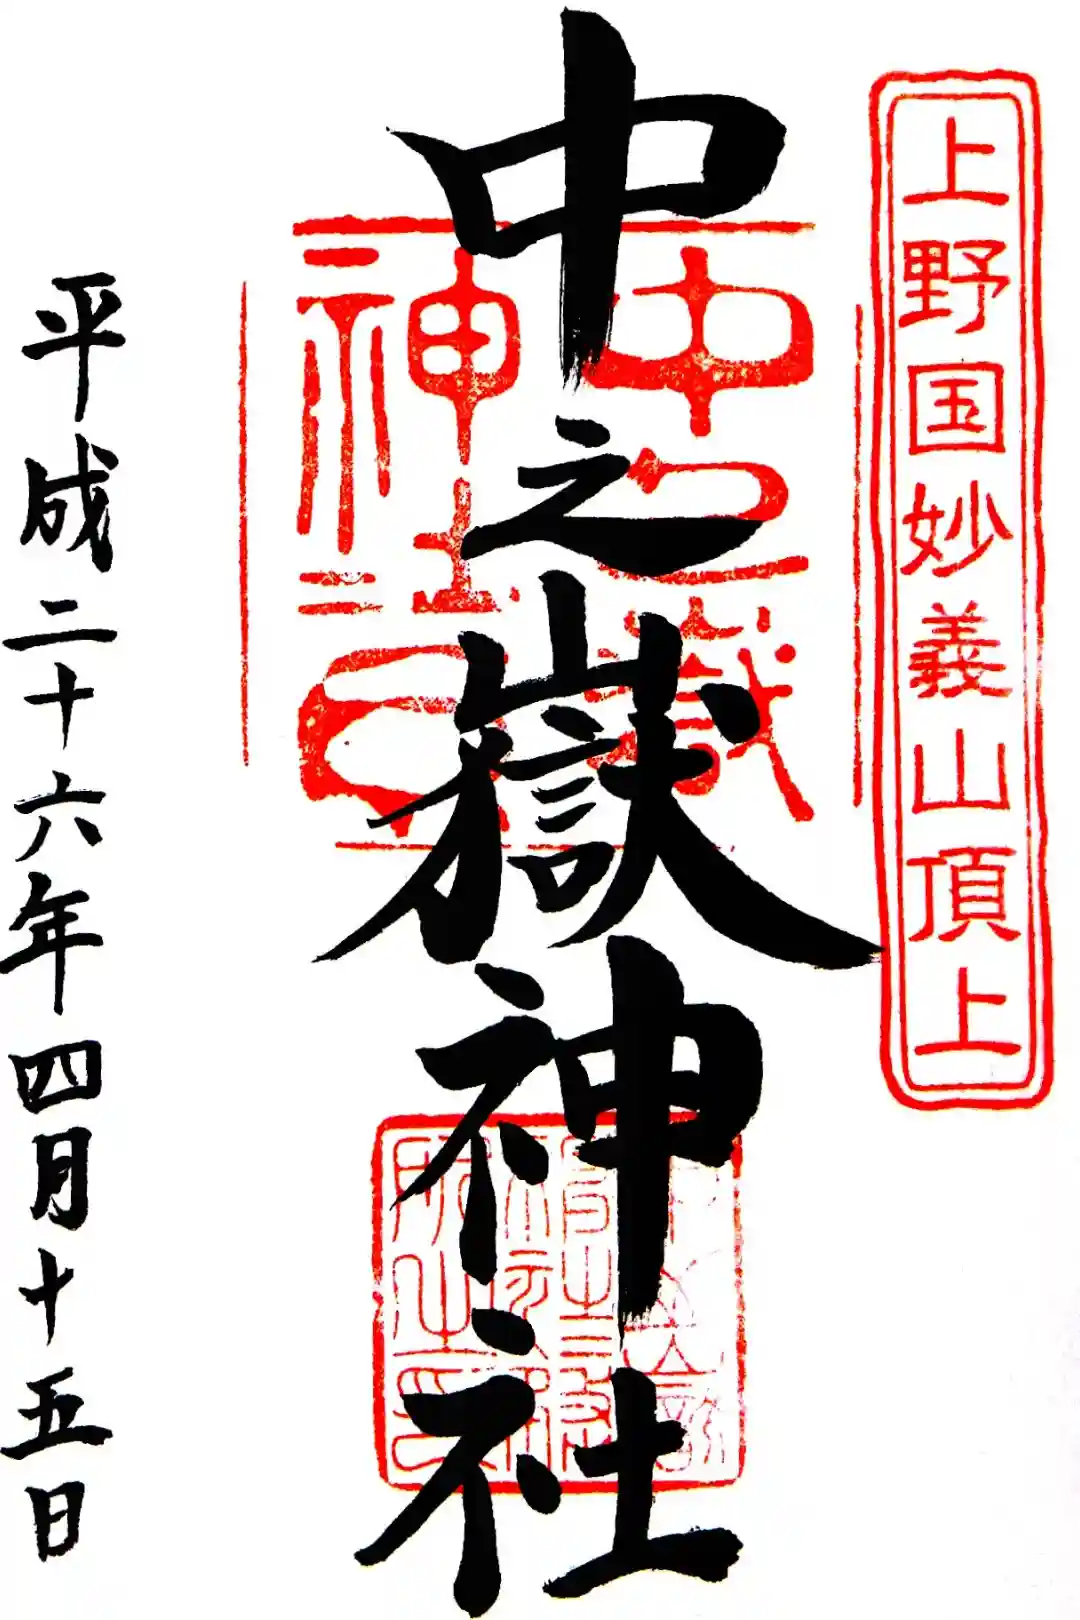 上野国妙義山頂上
中之嶽神社
中之嶽
神社印
平成二十六年四月十五日